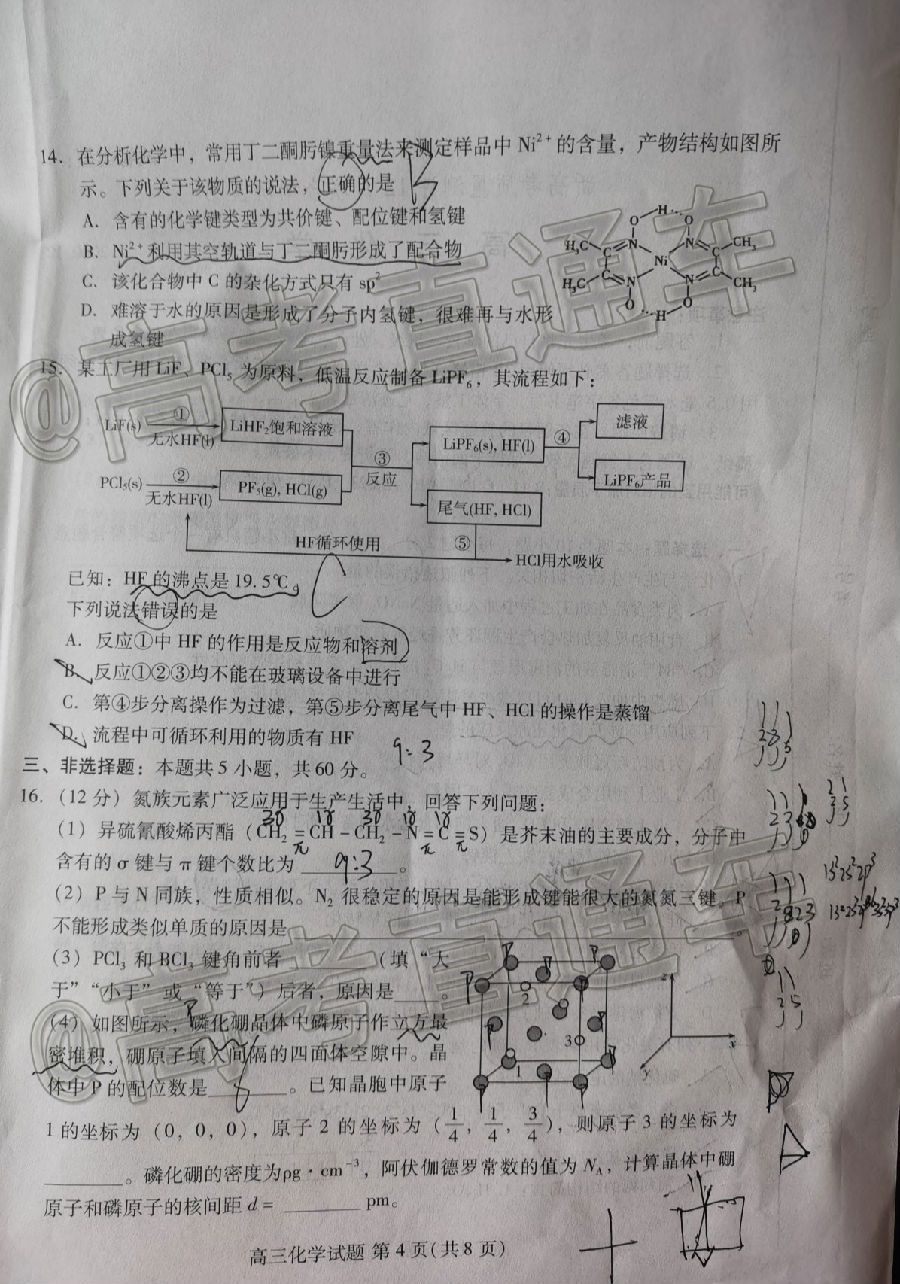 14. 在分析化学中，常用丁二酮肟镍重量法来测定样品中 Ni²⁺ 的含量，产物结构如图所
示。下列关于该物质的说法，正确的是 B
A. 含有的化学键类型为共价键、配位键和氢键
B. Ni²⁺利用其空轨道与丁二酮肟形成了配合物
C. 该化合物中 C 的杂化方式只有 sp²
D. 难溶于水的原因是形成了分子内氢键，很难再与水形
成氢键
O H O
H₃C N N CH₃
Ni
H₃C N N CH₃
O H O
15. 某工厂用 LiF、PCl₅ 为原料，低温反应制备 LiPF₆，其流程如下：
LiF(s) ① 无水HF(l) LiHF₂饱和溶液
PCl₅(s) ② 无水HF(l) PF₅(g), HCl(g)
③ 反应
LiPF₆(s), HF(l) ④ 滤液
LiPF₆产品
尾气(HF, HCl)
HF循环使用 ⑤ HCl用水吸收
已知：HF 的沸点是 19.5℃。 C
下列说法错误的是
A. 反应①中 HF 的作用是反应物和溶剂
B. 反应①②③均不能在玻璃设备中进行
C. 第④步分离操作为过滤，第⑤步分离尾气中 HF、HCl 的操作是蒸馏
D. 流程中可循环利用的物质有 HF
9:3
三、非选择题：本题共 5 小题，共 60 分。
16. （12 分）氮族元素广泛应用于生产生活中，回答下列问题：
（1）异硫氰酸烯丙酯（CH₂=CH－CH₂－N=C=S）是芥末油的主要成分，分子中
含有的 σ 键与 π 键个数比为 9:3 。
（2）P 与 N 同族，性质相似。N₂ 很稳定的原因是能形成键能很大的氮氮三键。P
不能形成类似单质的原因是
（3）PCl₃ 和 BCl₃ 键角前者________（填“大
于”“小于”或“等于”）后者，原因是____。
（4）如图所示，磷化硼晶体中磷原子作立方最
密堆积，硼原子填入间隔的四面体空隙中。晶
体中 P 的配位数是 8 。已知晶胞中原子
1 2 3
z x y
1 的坐标为（0，0，0），原子 2 的坐标为（1/4，1/4，3/4），则原子 3 的坐标为
________。磷化硼的密度为ρg·cm⁻³，阿伏伽德罗常数的值为 N_A，计算晶体中硼
原子和磷原子的核间距 d = ________ pm。
高三化学试题 第 4 页（共 8 页）
@高考直通车
@高考直通车